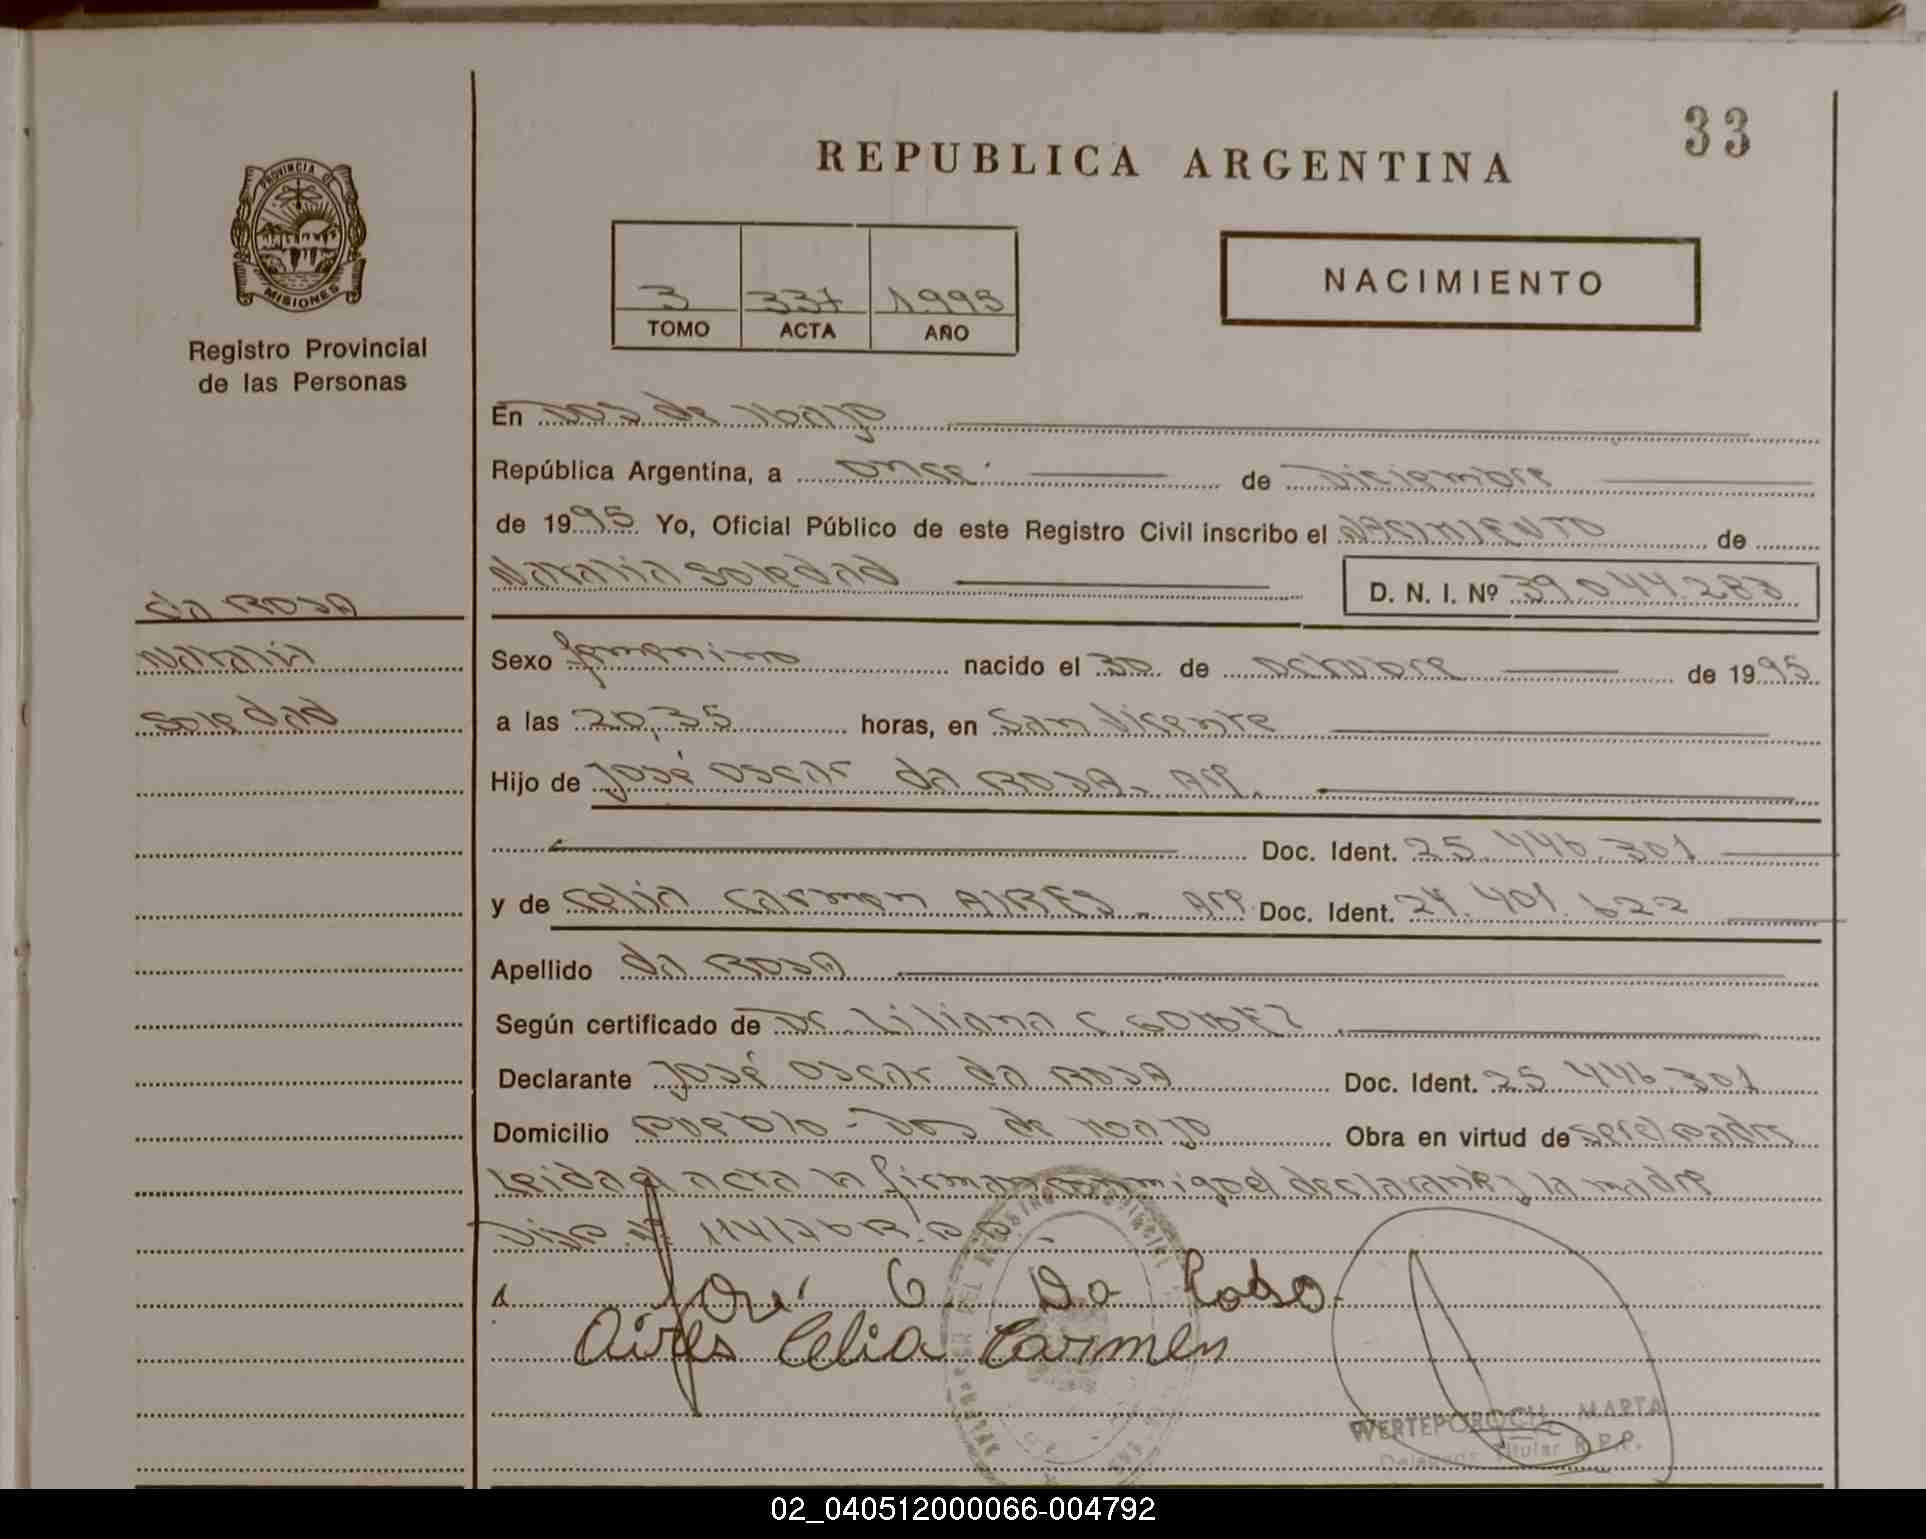 33
REPUBLICA ARGENTINA
PROVINCIA DE
MISIONES
Registro Provincial
de las Personas
3 337 1.995
TOMO ACTA AÑO
NACIMIENTO
En Dos de Mayo
República Argentina, a once de Diciembre
de 1995 Yo, Oficial Público de este Registro Civil inscribo el NACIMIENTO de
Natalia Soledad D. N. I. Nº 39.044.283
da ROSA
Natalia
Soledad
Sexo femenino nacido el 30 de octubre de 1995
a las 20,35 horas, en San Vicente
Hijo de José Oscar da ROSA. Arg.
Doc. Ident. 25.446.301
y de Celia Carmen AIRES - Arg. Doc. Ident. 24.401.622
Apellido da ROSA
Según certificado de Dr. Liliana C. GOMEZ
Declarante José Oscar da ROSA Doc. Ident. 25.446.301
Domicilio Pueblo - Dos de Mayo Obra en virtud de ser el padre
Leida el acta la firman conmigo el declarante y la madre
Disp. Nº 114/76 R.P.P.
José O. Da Rosa.
Aires Celia Carmen
WERTEPOROCH, MARTA
Titular R.P.P.
02_040512000066-004792